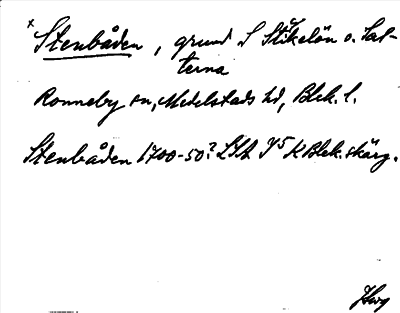 x Stenbåden, grund S Stikelön o. Sal-
terna
Ronneby sn, Medelstads hd, Blek. l.
Stenbåden 1700-50? LSA Y5 K Blek. skärg.